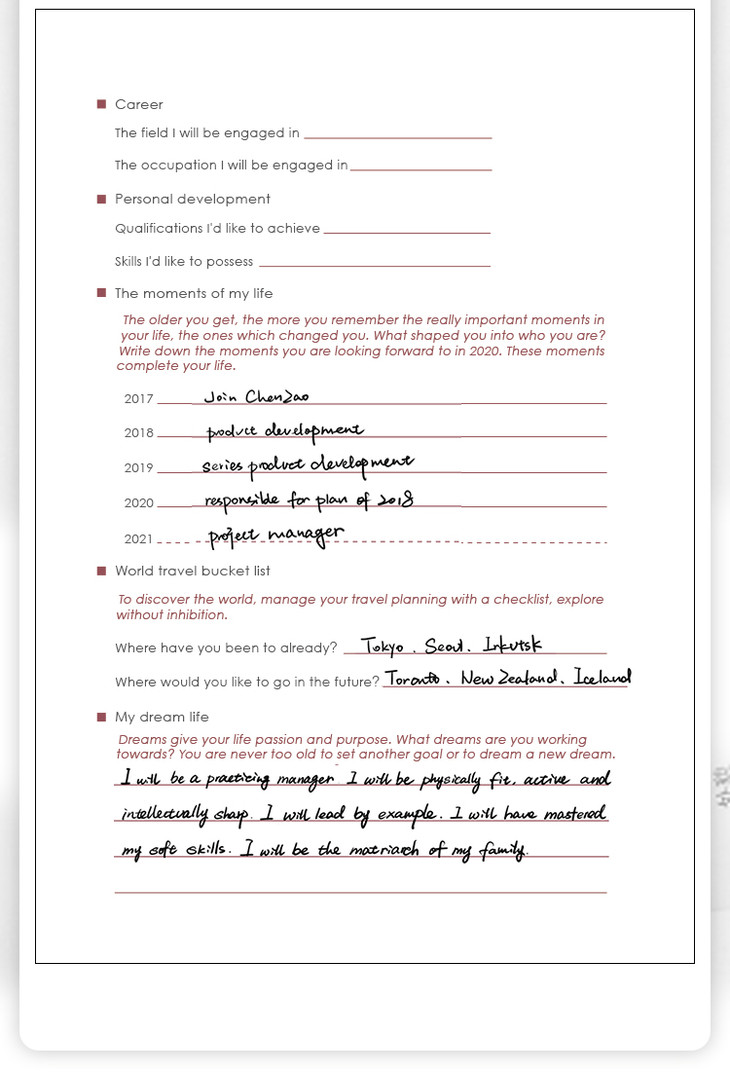 Career
The field I will be engaged in
The occupation I will be engaged in
Personal development
Qualifications I'd like to achieve
Skills I'd like to possess
The moments of my life
The older you get, the more you remember the really important moments in
your life, the ones which changed you. What shaped you into who you are?
Write down the moments you are looking forward to in 2020. These moments
complete your life.
2017 Join ChenZao
2018 product development
2019 series product development
2020 responsible for plan of 2018
2021 project manager
World travel bucket list
To discover the world, manage your travel planning with a checklist, explore
without inhibition.
Where have you been to already? Tokyo. Seoul. Irkutsk
Where would you like to go in the future? Toronto. New Zealand. Iceland
My dream life
Dreams give your life passion and purpose. What dreams are you working
towards? You are never too old to set another goal or to dream a new dream.
I will be a practicing manager I will be physically fit, active and
intellectually sharp. I will lead by example. I will have mastered
my soft skills. I will be the matriarch of my family.